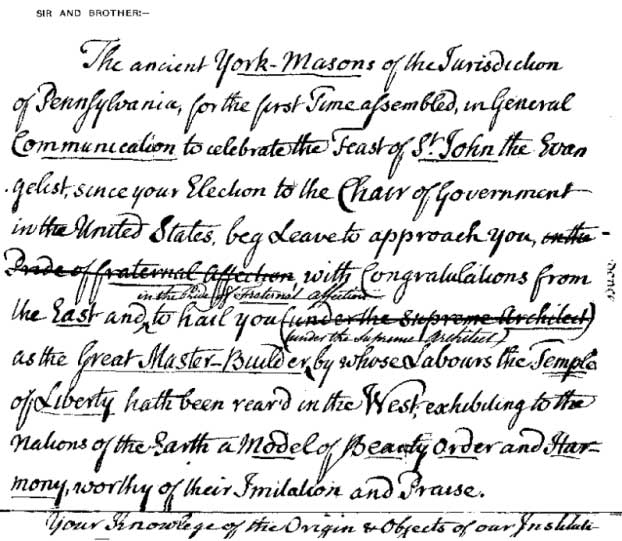 SIR AND BROTHER:—
The ancient York-Masons of the Jurisdiction
of Pennsylvania, for the first Time assembled, in General
Communication to celebrate the Feast of St John the Evan
gelist, since your Election to the Chair of Government
in the United States, beg Leave to approach you, in the
Pride of fraternal affection with Congratulations from
in the Pride of Fraternal affection
the East and, to hail you (under the Supreme Architect)
(under the Supreme Architect)
as the Great Master-Builder, by whose Labours the Temple
of Liberty hath been rear'd in the West, exhibiting to the
Nations of the Earth a Model of Beauty Order and Har-
mony, worthy of their Imitation and Praise.
Your Knowlege of the Origin & Objects of our Instituti